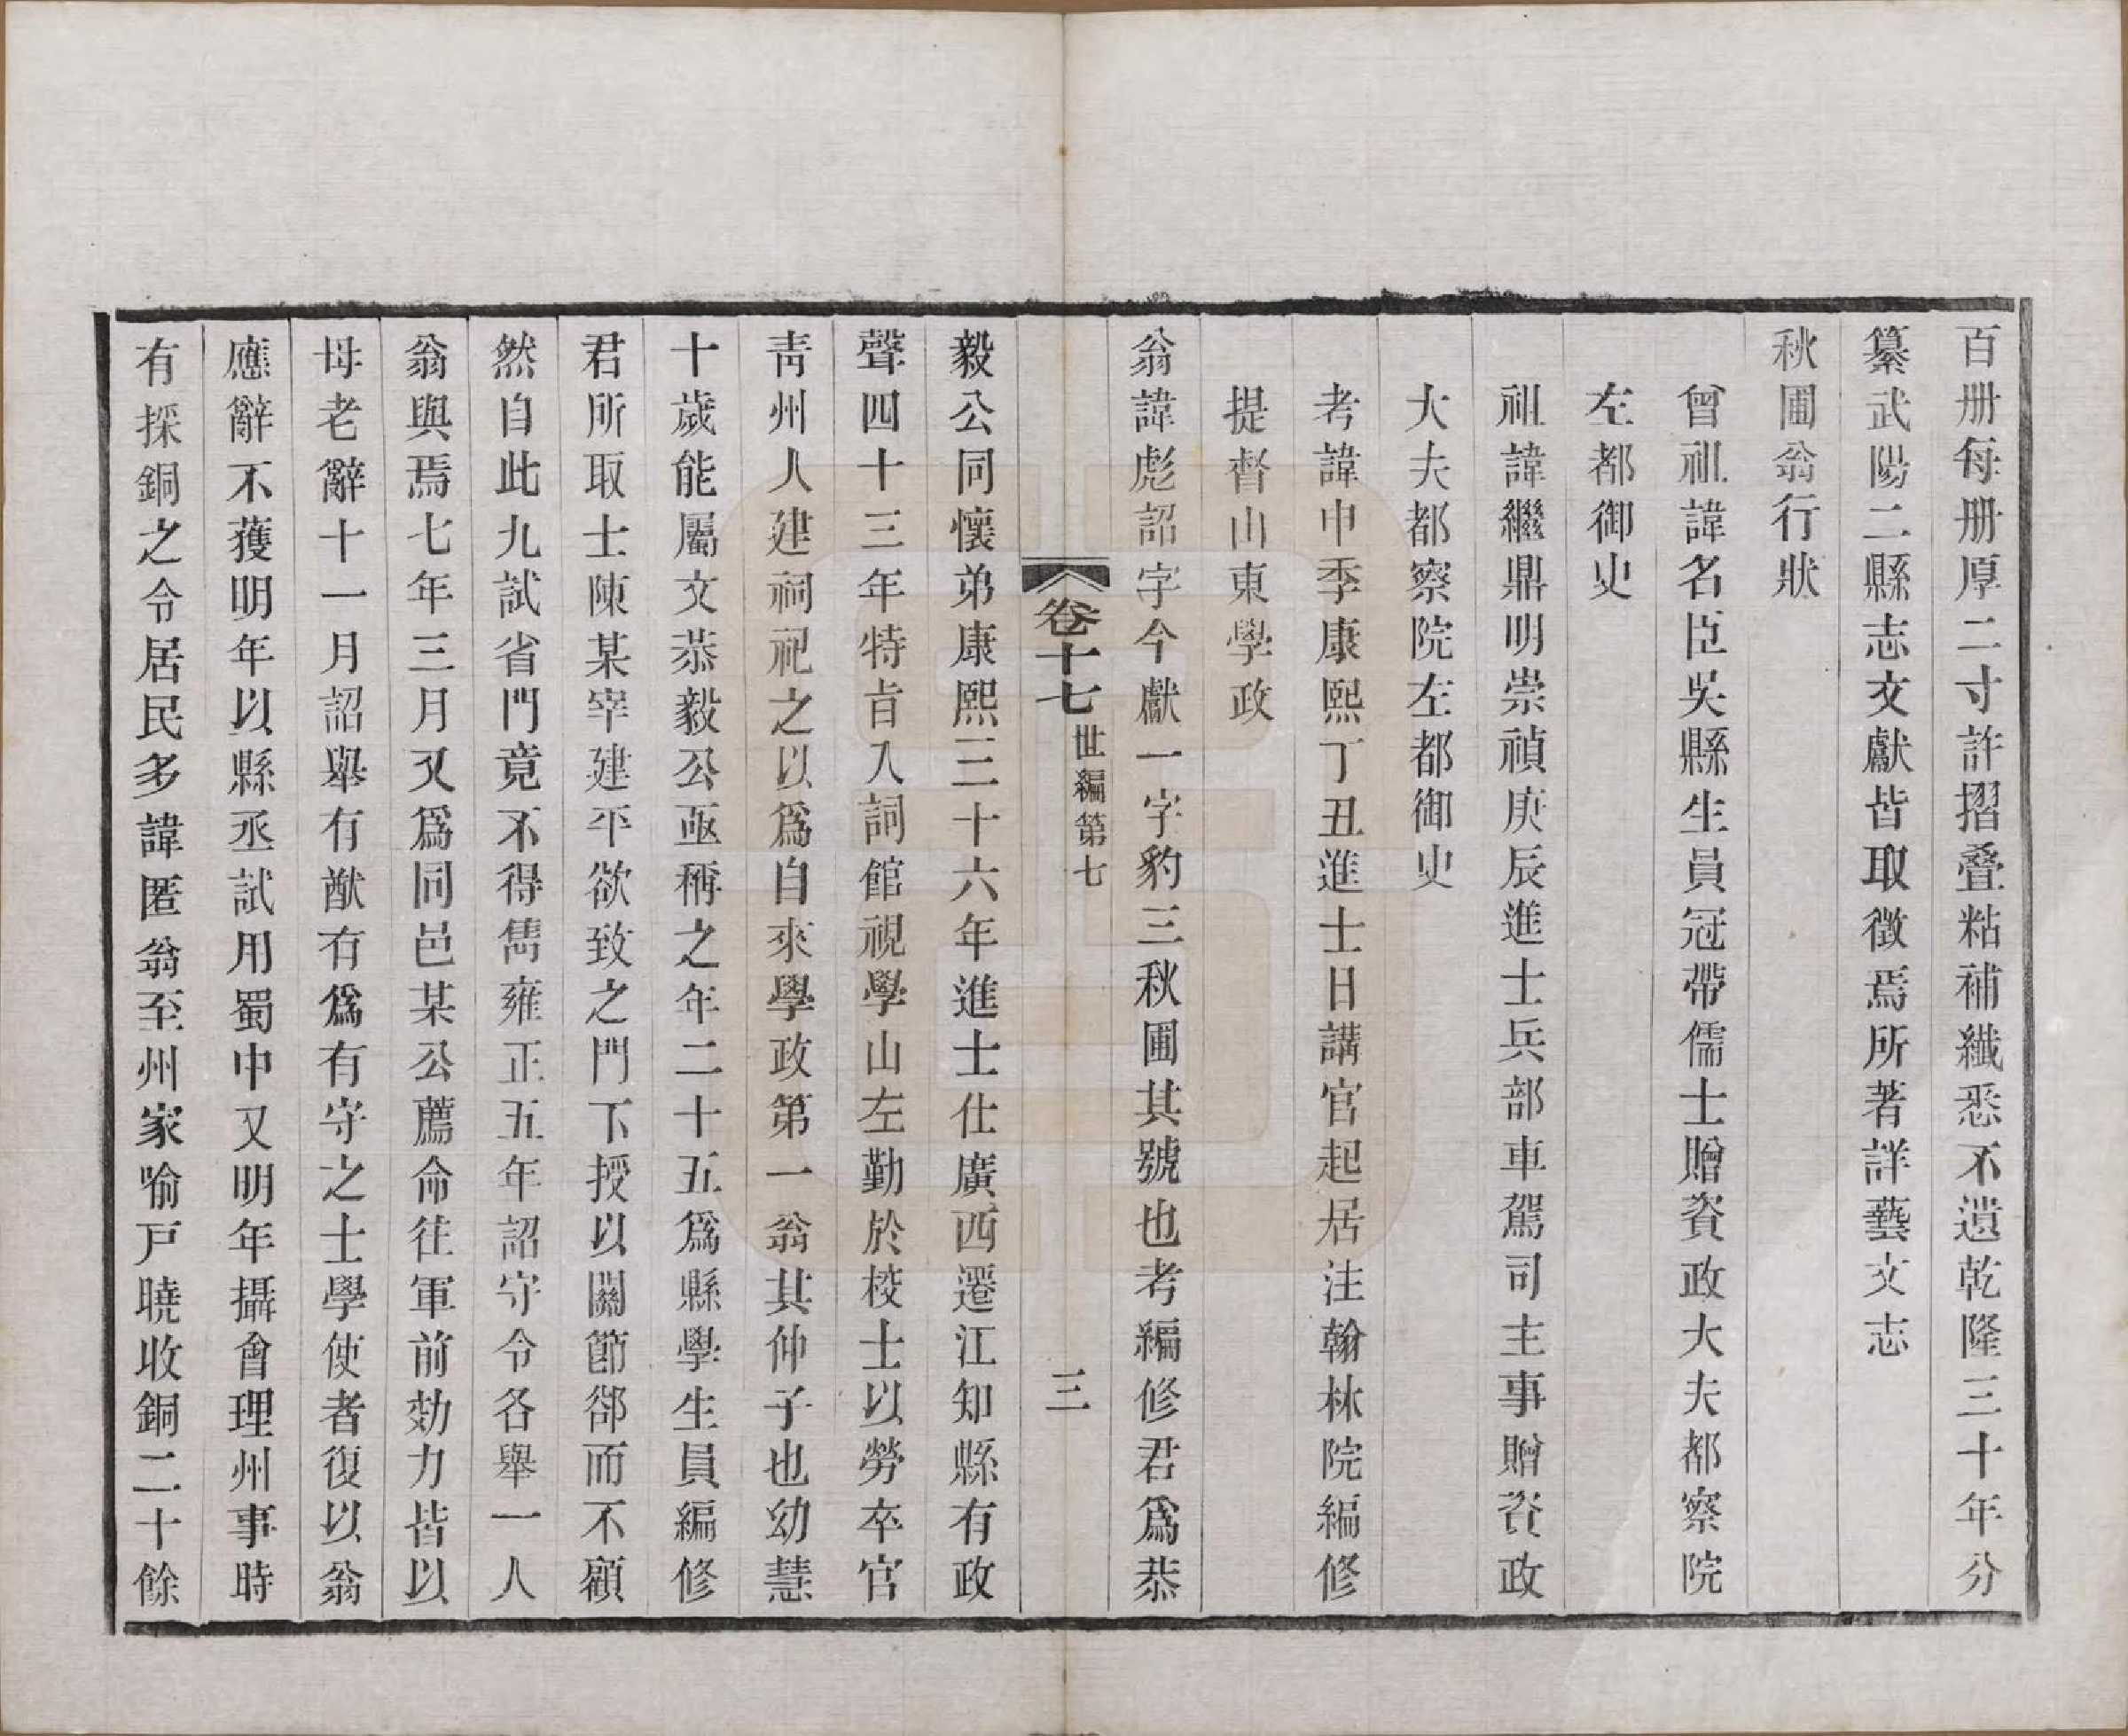 百册每册厚二寸許摺叠粘補纖悉不遺乾隆三十年分
纂武陽二縣志文獻皆取徵焉所著詳藝文志
秋圃翁行狀
曾祖諱名臣吳縣生員冠帶儒士贈資政大夫都察院
左都御史
祖諱繼鼎明崇禎庚辰進士兵部車駕司主事贈資政
大夫都察院左都御史
考諱申季康熙丁丑進士日講官起居注翰林院編修
提督山東學政
翁諱彪詔字今獻一字豹三秋圃其號也考編修君爲恭
卷十七 世編第七 三
毅公同懷弟康熙三十六年進士仕廣西遷江知縣有政
聲四十三年特㫖入詞館視學山左勤於校士以勞卒官
靑州人建祠祀之以爲自來學政第一翁其仲子也幼慧
十歲能屬文恭毅公亟稱之年二十五爲縣學生員編修
君所取士陳某宰建平欲致之門下授以關節郤而不顧
然自此九試省門竟不得雋雍正五年詔守令各舉一人
翁與焉七年三月又爲同邑某公薦命往軍前効力皆以
母老辭十一月詔舉有猷有爲有守之士學使者復以翁
應辭不獲明年以縣丞試用蜀中又明年攝會理州事時
有採銅之令居民多諱匿翁至州家喻戸曉收銅二十餘